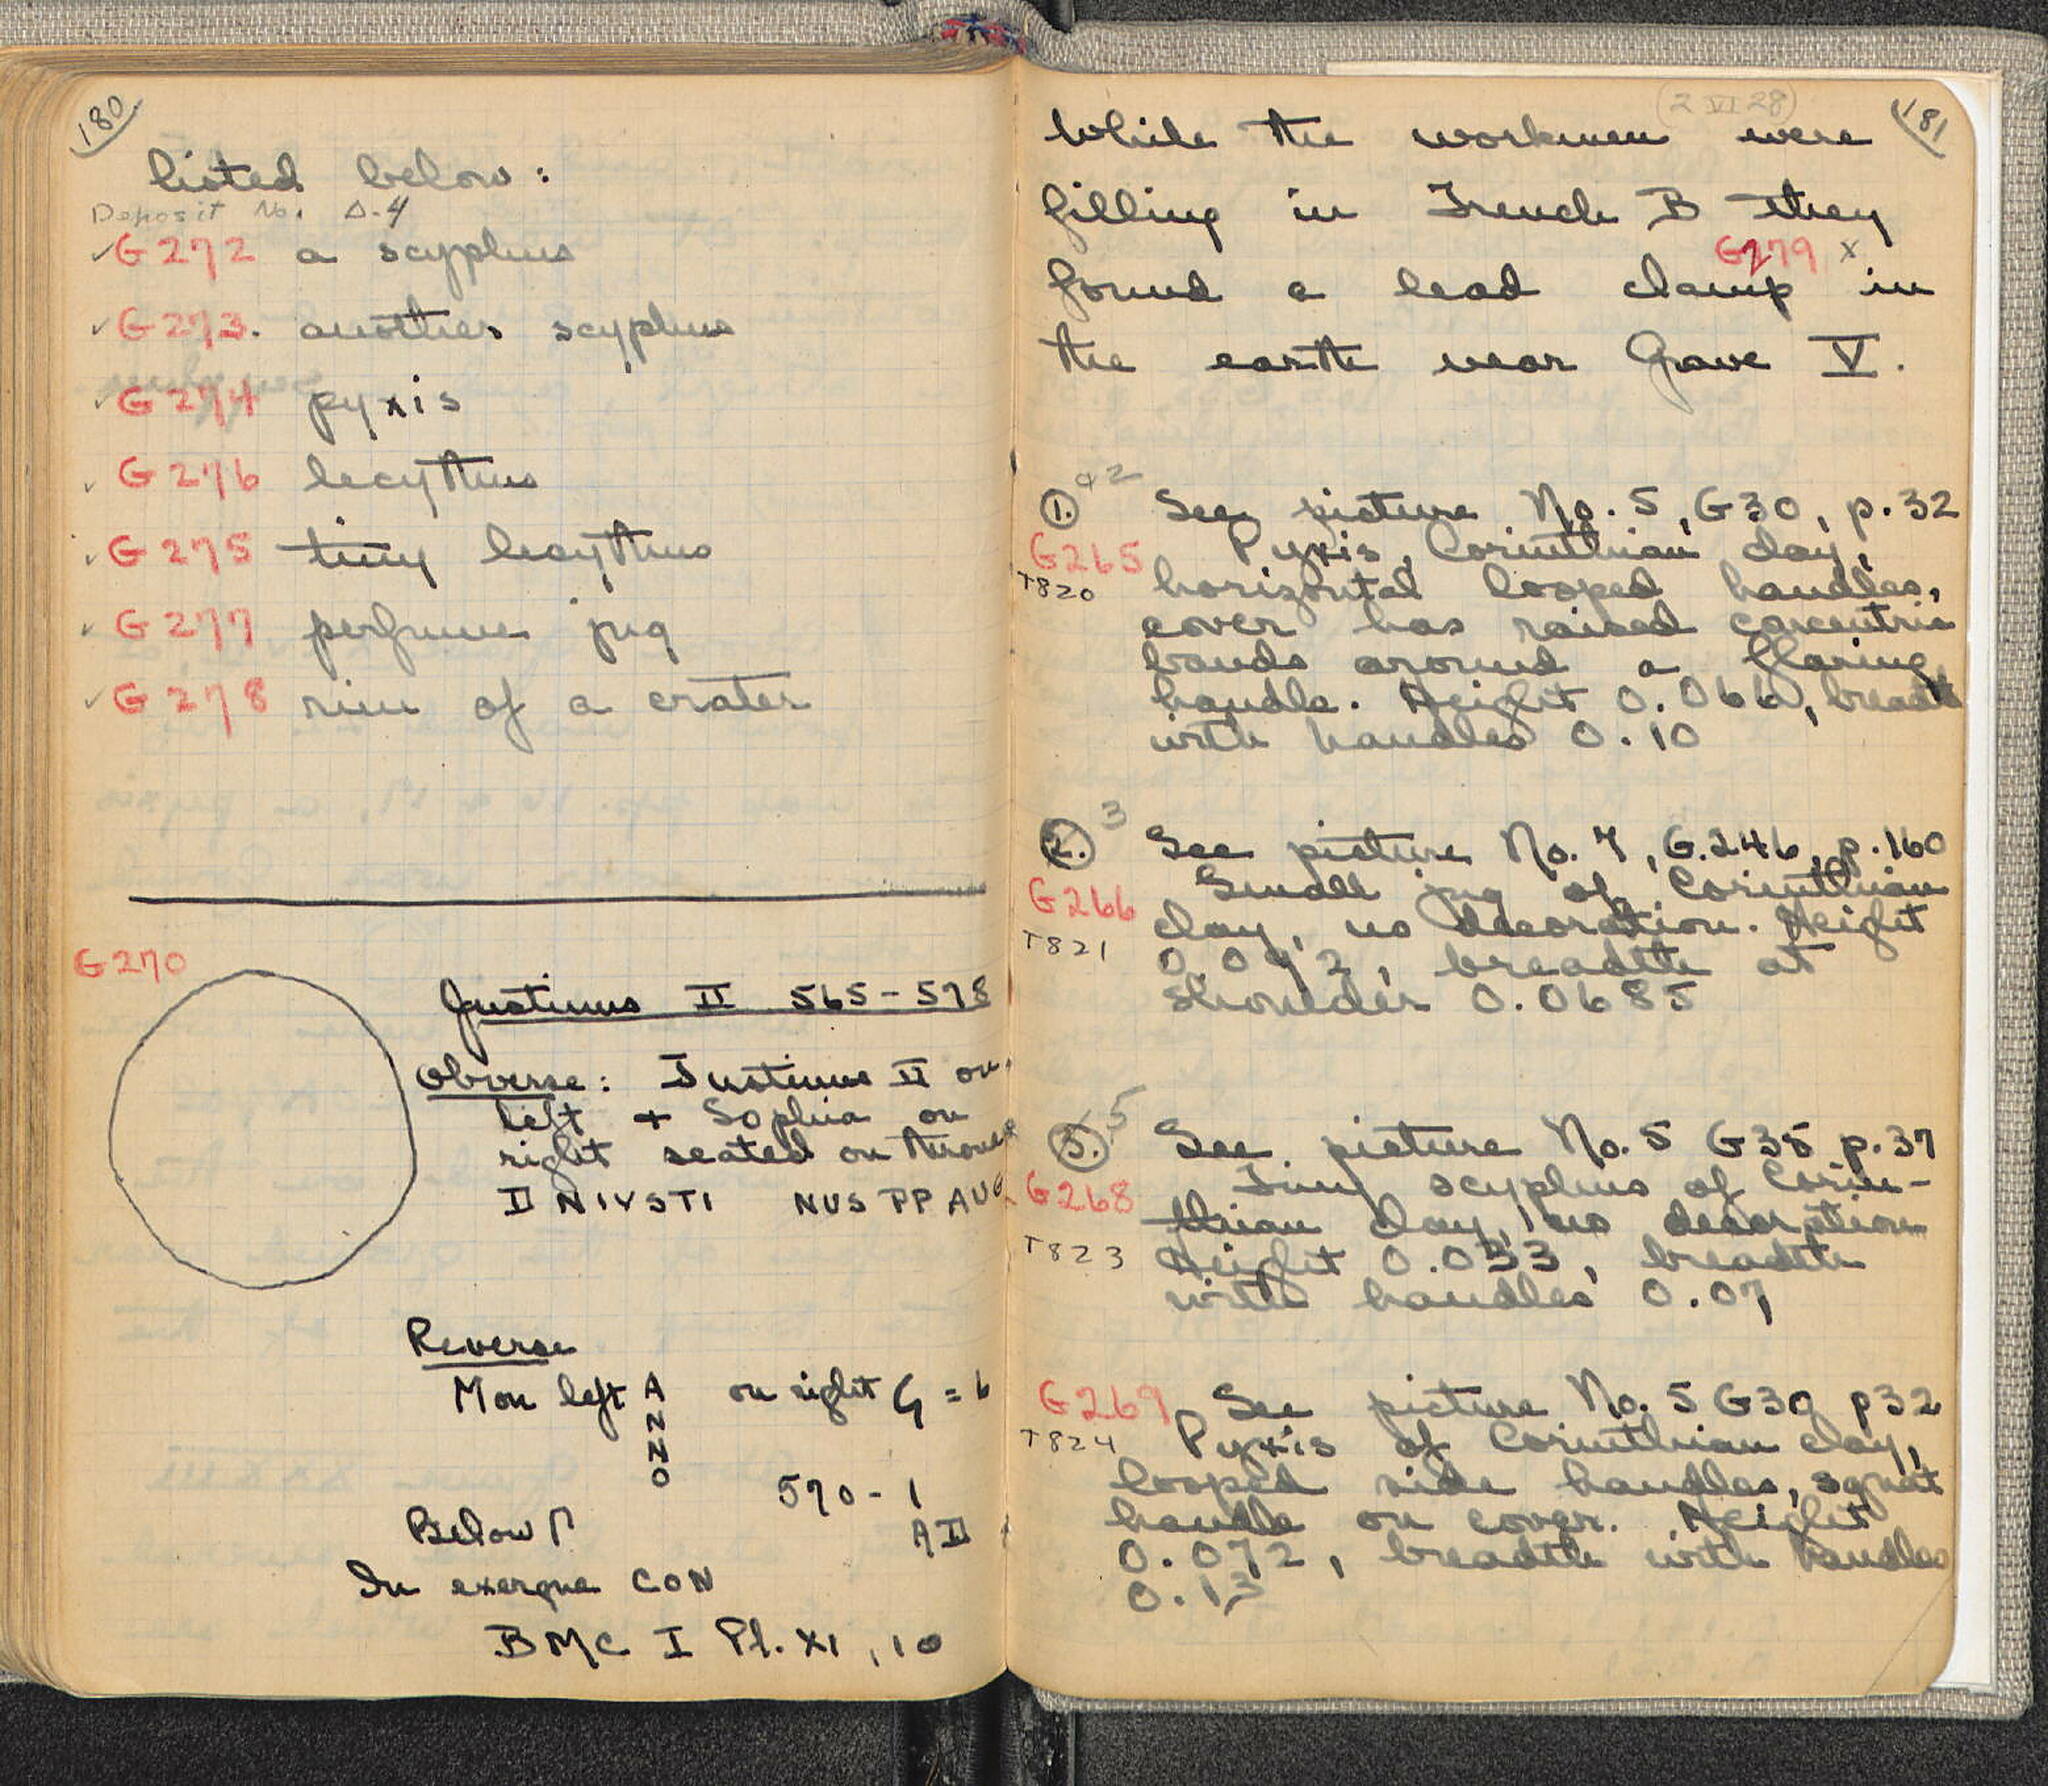 180
listed below:
Deposit No. Δ-4
✓ G272 a scyphus
✓ G273. another scyphus
✓ G274 pyxis
✓ G276 lecythus
✓ G275 tiny lecythus
✓ G277 perfume jug
✓ G278 rim of a crater
G270
Justinus II 565-578
Obverse: Justinus II on
left + Sophia on
right seated on throne
D N IVSTI NUS PP AUG
Reverse
M on left A on right G = 6
N
N
O
570-1
Below Γ
A II
In exergue CON
BMC I Pl. XI, 10
(2 VI 28)
181
While the workmen were
filling in Trench B they
G279 x
found a lead clamp in
the earth near Grave V.
1. 2 See picture No. 5, G30, p. 32
G265 Pyxis, Corinthian clay,
T820 horizontal looped handles,
cover has raised concentric
bands around a flaring
handle. Height 0.066, breadth
with handles 0.10
2. 3 See picture No. 7, G.246, p. 160
G266 Small jug of Corinthian
clay, no decoration. Height
T821 0.092, breadth at
shoulder 0.0685
3. 5 See picture No. 5 G35 p. 37
G268 Tiny scyphus of Corin-
thian clay, no decoration
T823 Height 0.033, breadth
with handles 0.07
G269 See picture No. 5 G30 p32
T824 Pyxis of Corinthian clay,
looped side handles, squat
handle on cover. Height
0.072, breadth with handles
0.13